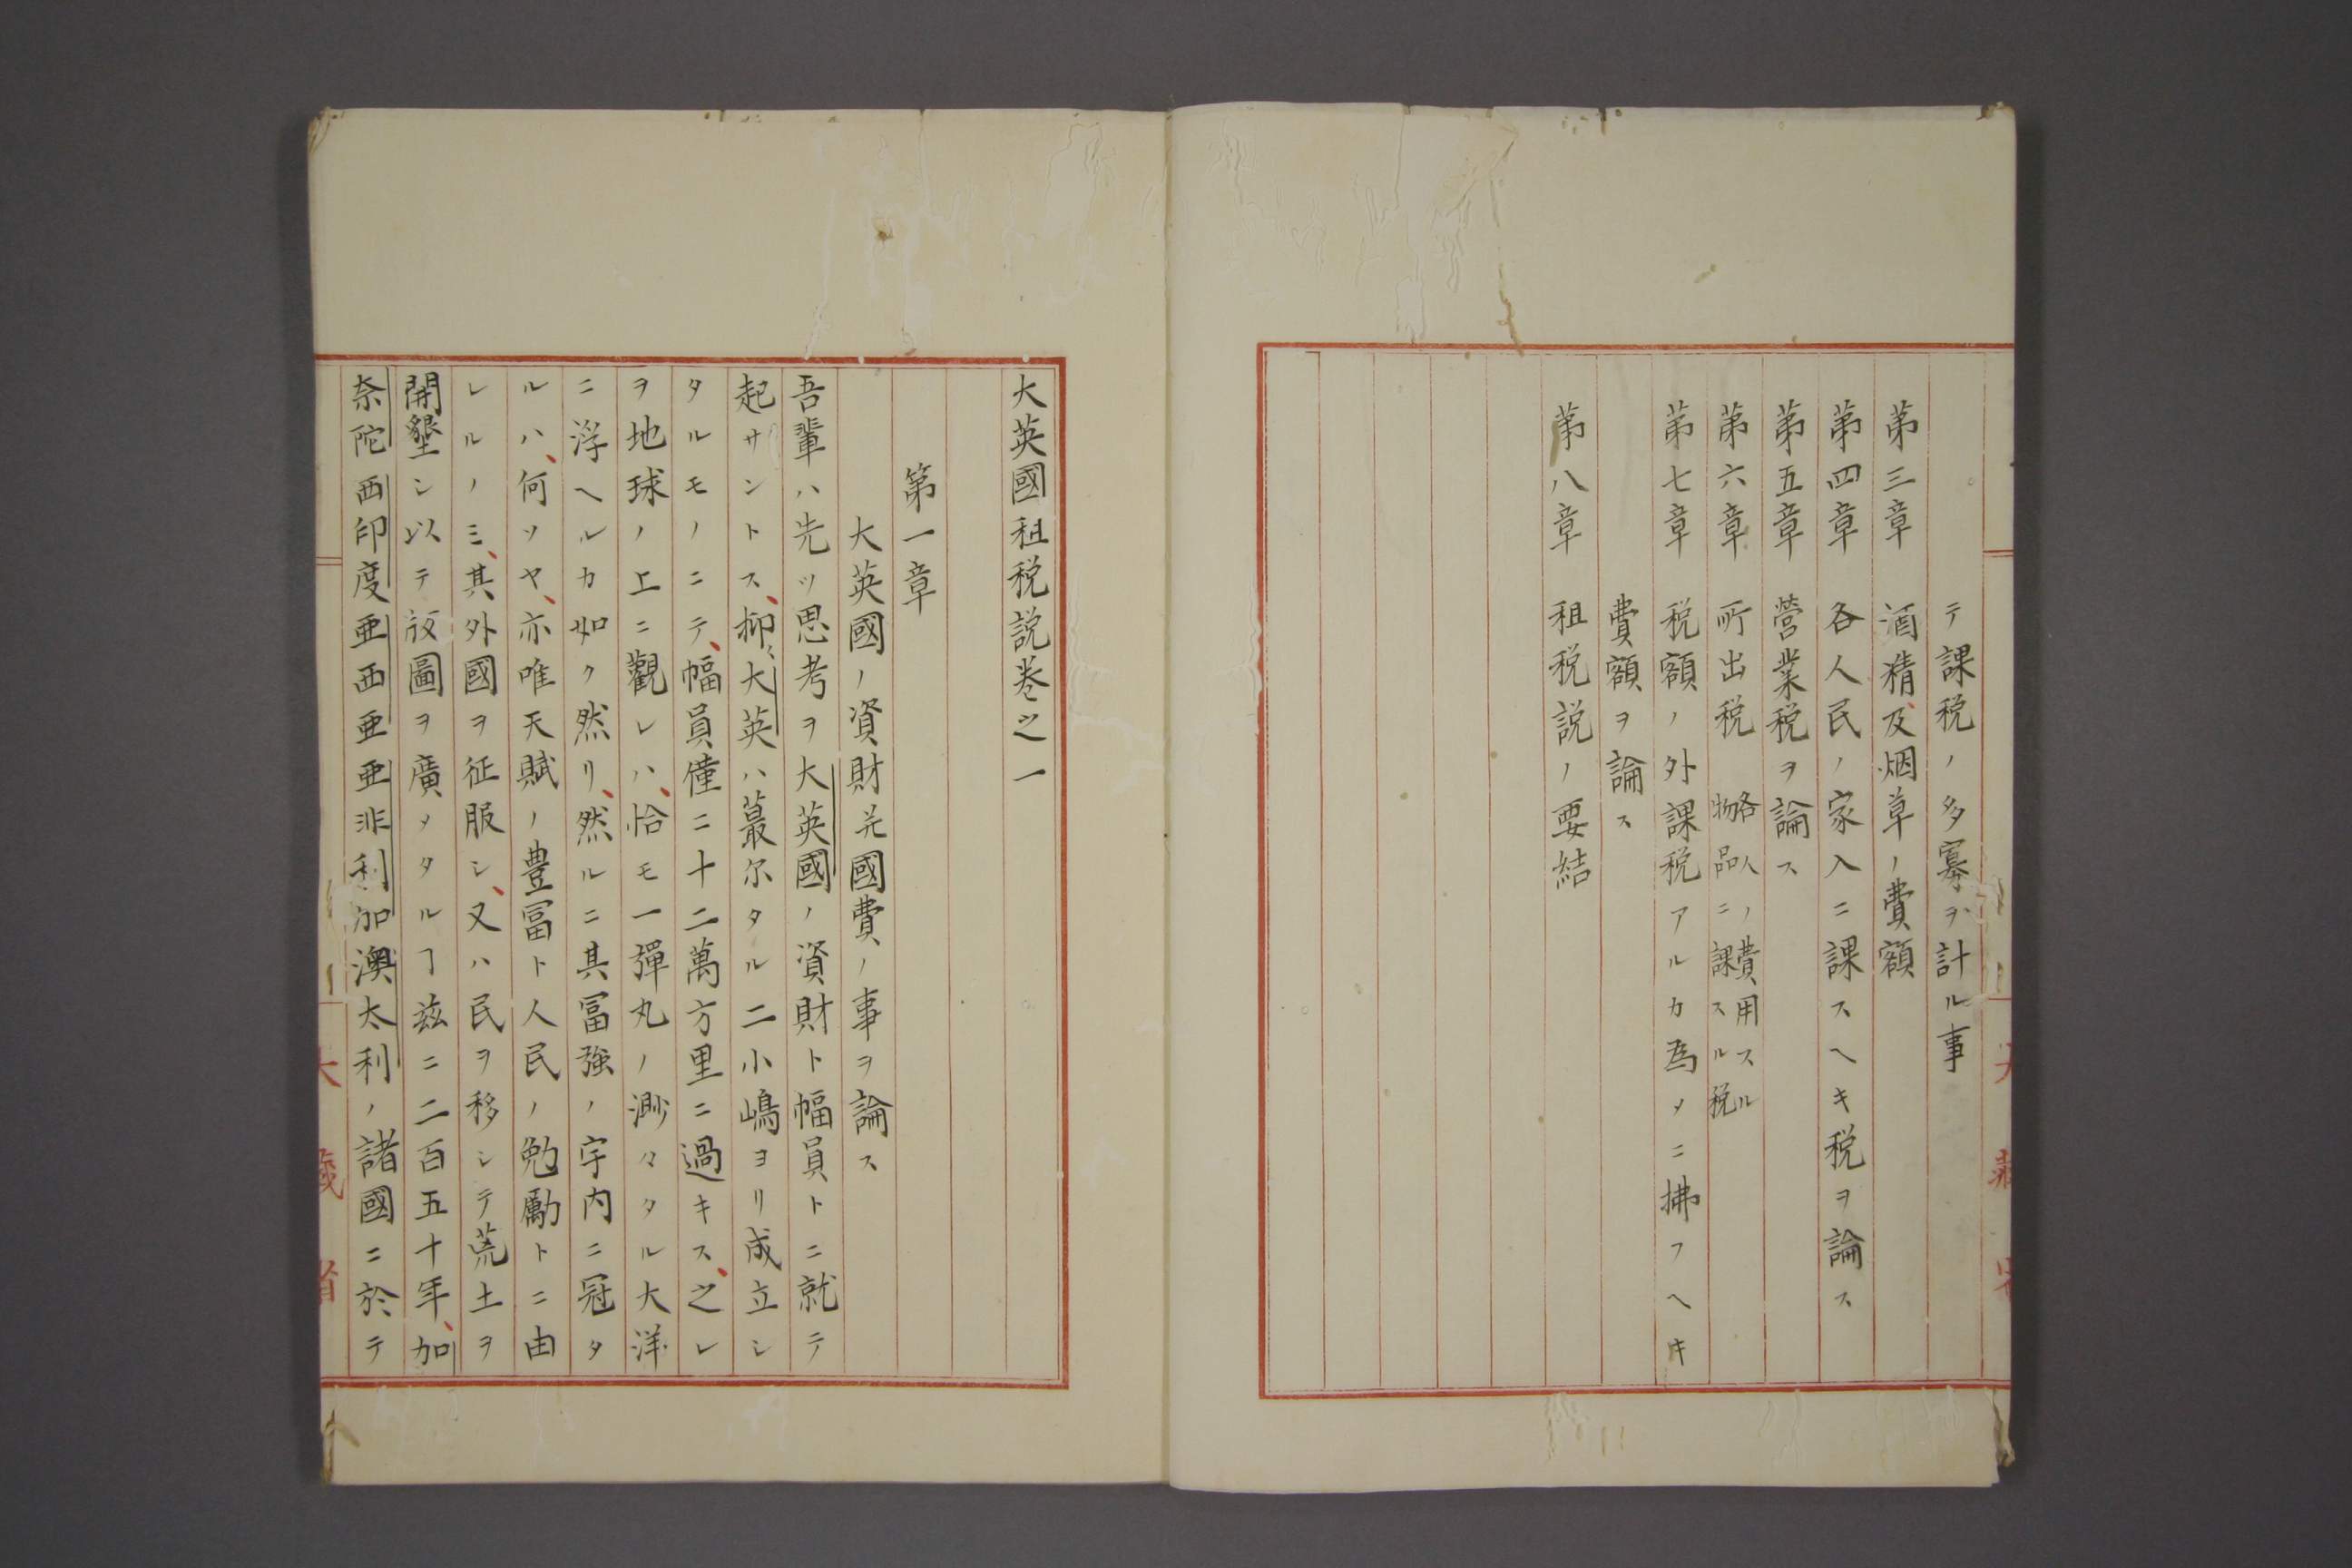 テ課税ノ多寡ヲ計ル事
第三章 酒精及烟草ノ費額
第四章 各人民ノ家入ニ課スヘキ税ヲ論ス
第五章 營業税ヲ論ス
第六章 所出税 各人ノ費用スル
物品ニ課スル税
第七章 税額ノ外課税アルカ為メニ拂フヘキ
費額ヲ論ス
第八章 租税説ノ要結
大英國租税説巻之一
第一章
大英國ノ資財并國費ノ事ヲ論ス
吾輩ハ先ツ思考ヲ大英國ノ資財ト幅員トニ就テ
起サントス、抑〻大英ハ蕞尔タル二小嶋ヨリ成立シ
タルモノニテ、幅員僅ニ十二萬方里ニ過キス、之レ
ヲ地球ノ上ニ觀レハ、恰モ一彈丸ノ渺々タル大洋
ニ浮ヘルカ如ク然リ、然ルニ其冨強ノ宇内ニ冠タ
ルハ、何ソヤ、亦唯天賦ノ豊冨ト人民ノ勉勵トニ由
レルノミ、其外國ヲ征服シ、又ハ民ヲ移シテ荒土ヲ
開墾シ以テ版圖ヲ廣メタルヿ玆ニ二百五十年、加
奈陀西印度亜西亜亜非利加澳太利ノ諸國ニ於テ
大藏省